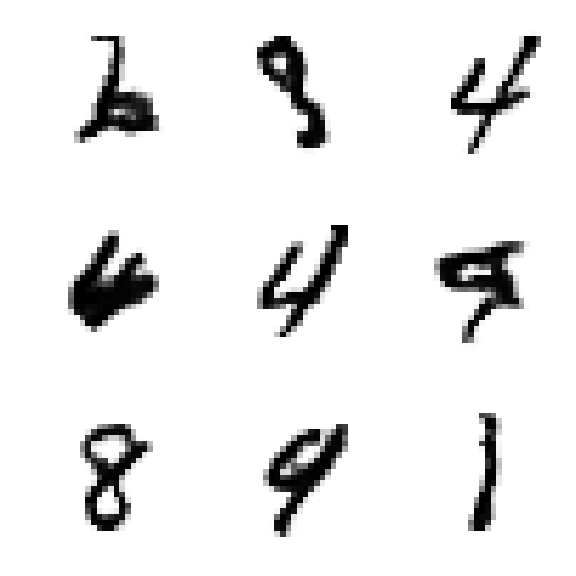 2 8 4
6 4 9
8 9 1